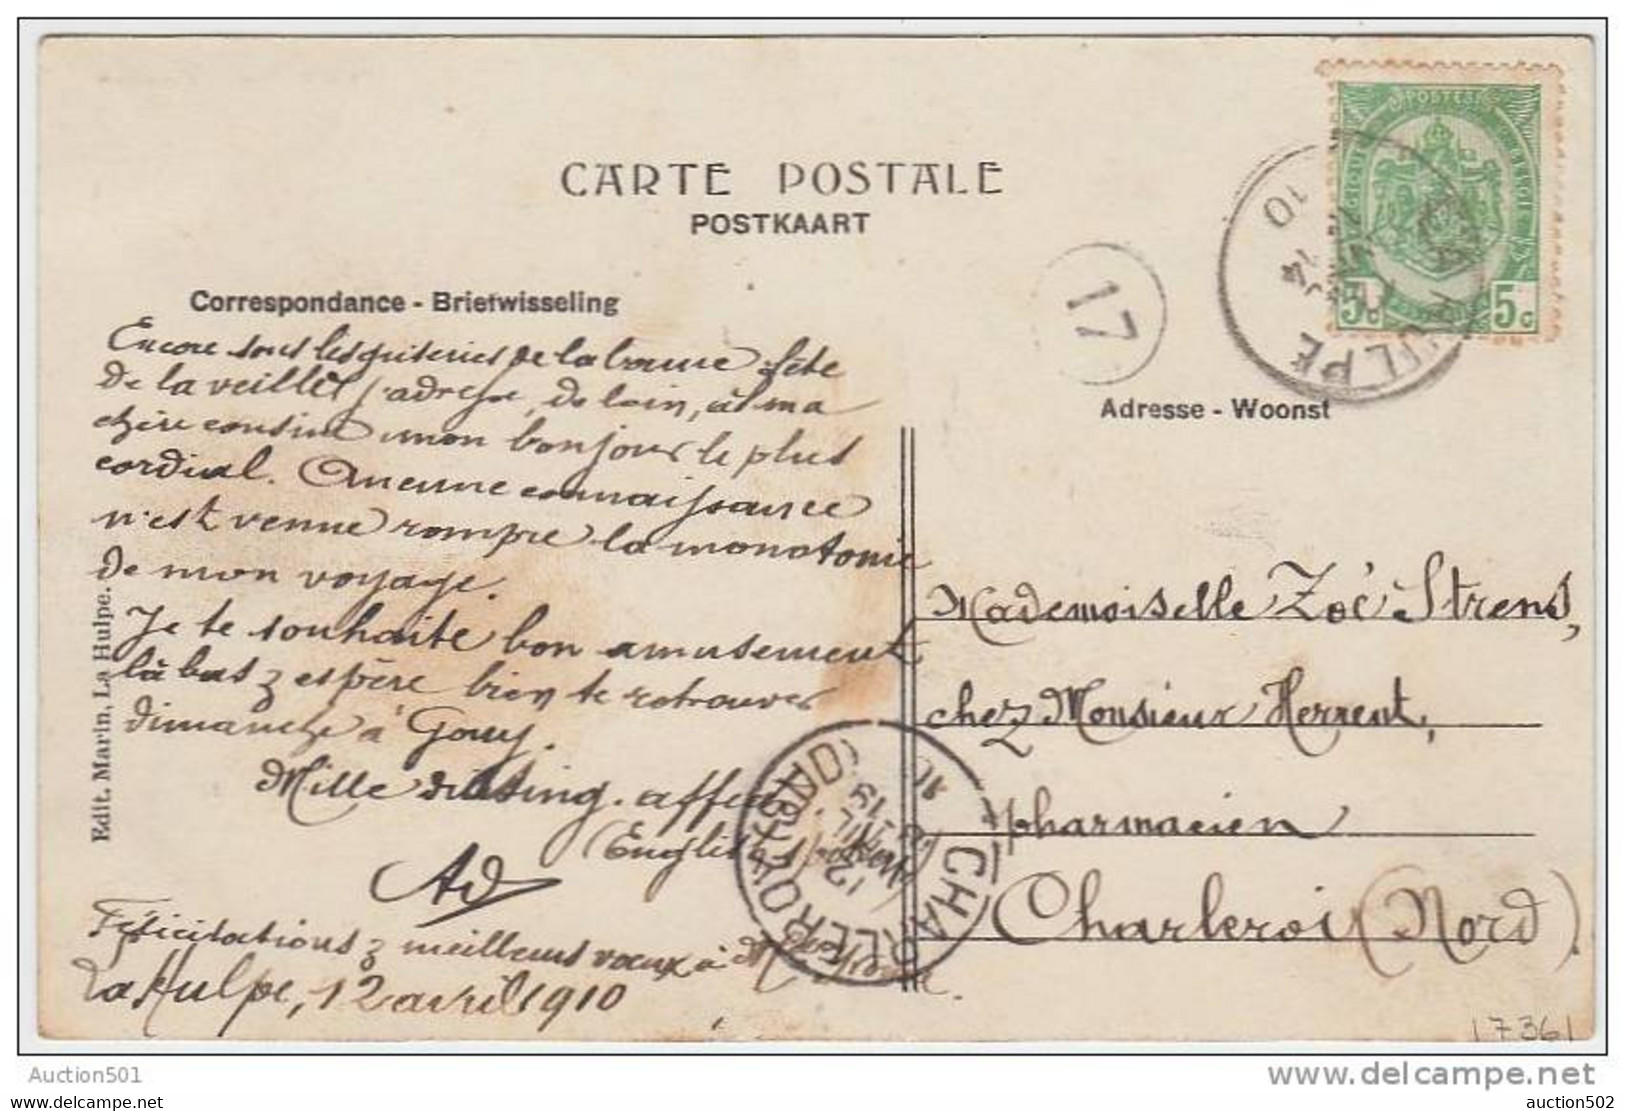 CARTE POSTALE
POSTKAART
Correspondance - Briefwisseling
Encore sous les griseries de la bonne fête
de la veille, j'adresse, de loin, à ma
chère cousine mon bonjour le plus
cordial. Aucune connaissance
n'est venue rompre la monotonie
de mon voyage.
Je te souhaite bon amusement
là bas & espère bien te retrouver
dimanche à Gouy.
Mille
(English
Ad
Félicitations & meilleurs vœux à
La Hulpe, 12 avril 1910
Edit. Marin, La Hulpe.
17
POSTES
5c
5c
10
14
HULPE
Adresse - Woonst
Mademoiselle Zoé Strens,
chez Monsieur Herrent,
pharmacien
Charleroi (Nord).
CHARLEROY (SUD)
12
AVRIL
19
10
17361
Auction501
www.delcampe.net
auction501
auction502